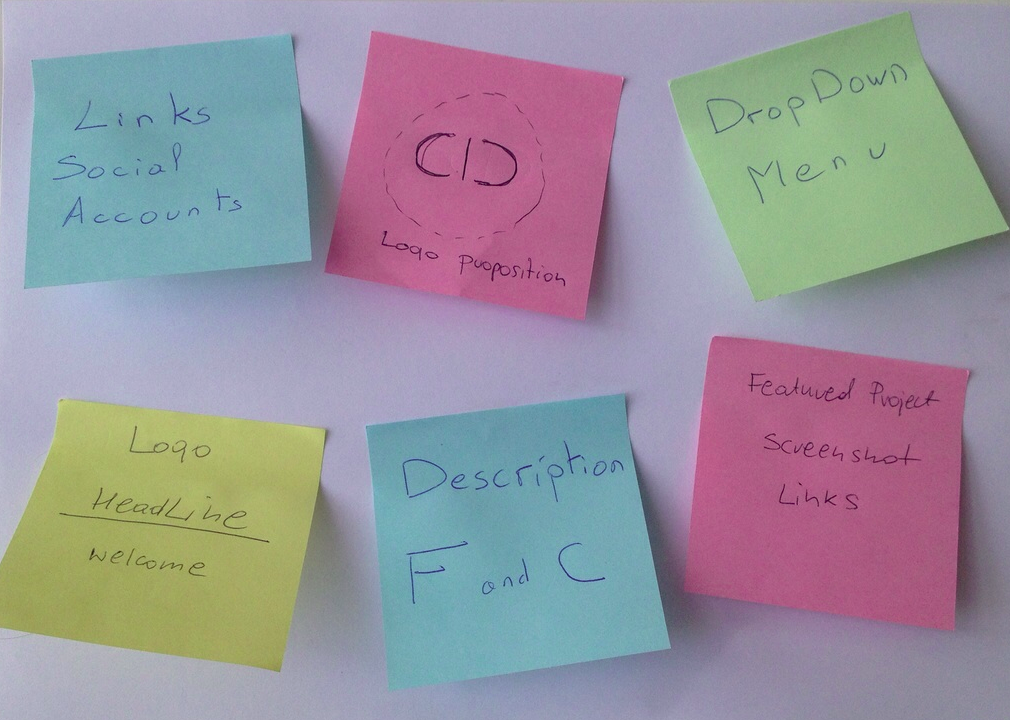 Links
Social
Accounts
CID
Logo puoposition
DropDown
Menu
Logo
HeadLine
welcome
Description
F and C
Featured Project
Screenshot
Links